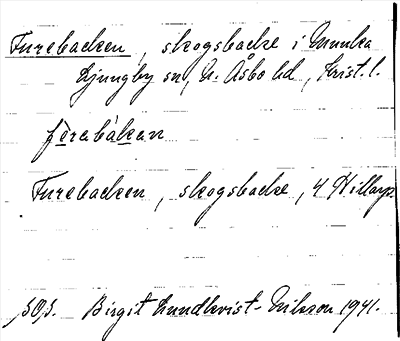 Furebacken, skogsbacke i Munka
Ljungby sn, N. Åsbo hd, Krist. l.
fòrebàkan
Furebacken, skogsbacke, 4 Hillarp.
Birgit Lundkvist-Nilsson 1941.